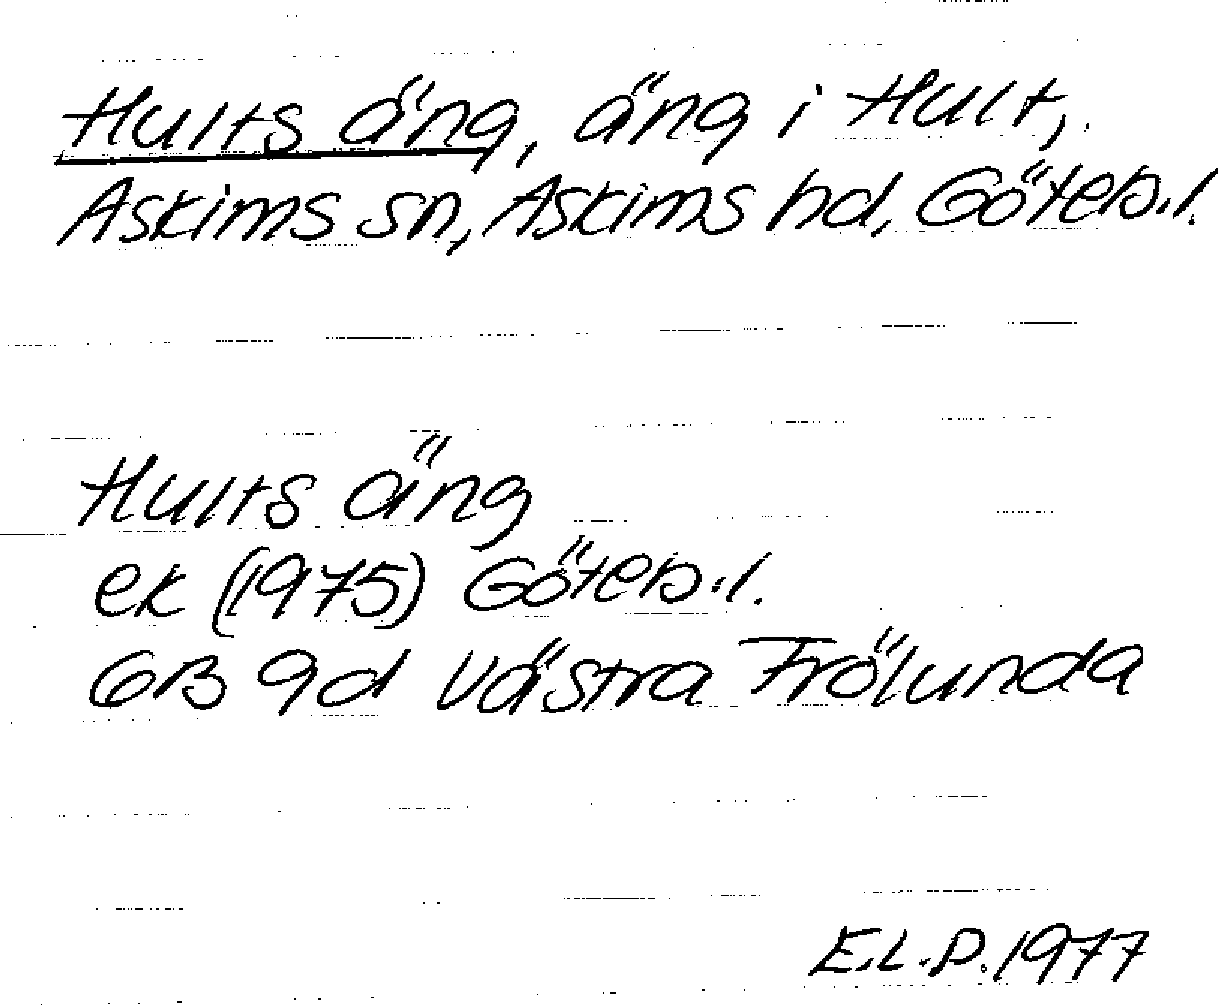 Hults äng, äng i Hult,
Askims sn, Askims hd, Göteb.l.
Hults äng
ek (1975) Göteb.l.
6B 9d Västra Frölunda
E.L.P. 1977